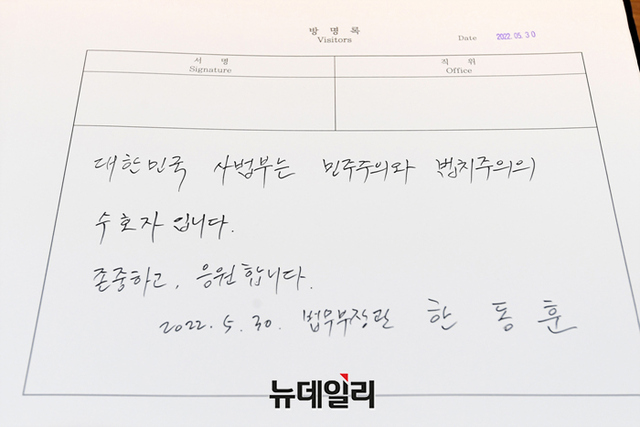 방 명 록
Visitors
Date 2022. 05. 30
서 명
Signature
직 위
Office
대한민국 사법부는 민주주의와 법치주의의
수호자입니다.
존중하고, 응원합니다.
2022. 5. 30. 법무부장관 한 동 훈
뉴데일리